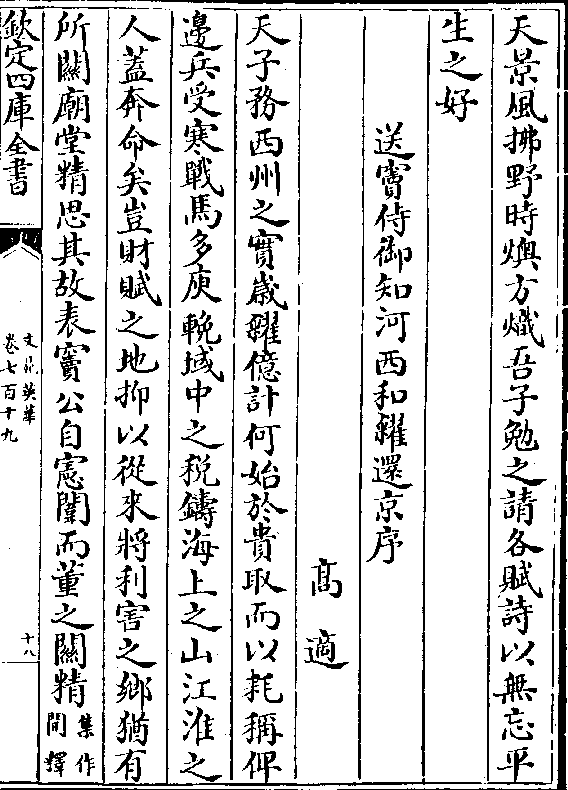 天景風拂野時燠方熾吾子勉之請各賦詩以無忘平
生之好
送竇侍御知河西和糴還京序
高適
天子務西州之實歳糴億計何始於貴取而以耗稱俾
邊兵受寒戰馬多庾輓域中之税鑄海上之山江淮之
人蓋奔命矣豈財賦之地抑以從來將利害之鄉猶有
所闗廟堂精思其故表竇公自憲闈而董之闗精集作間釋
欽定四庫全書
文苑英華
卷七百十九
十八